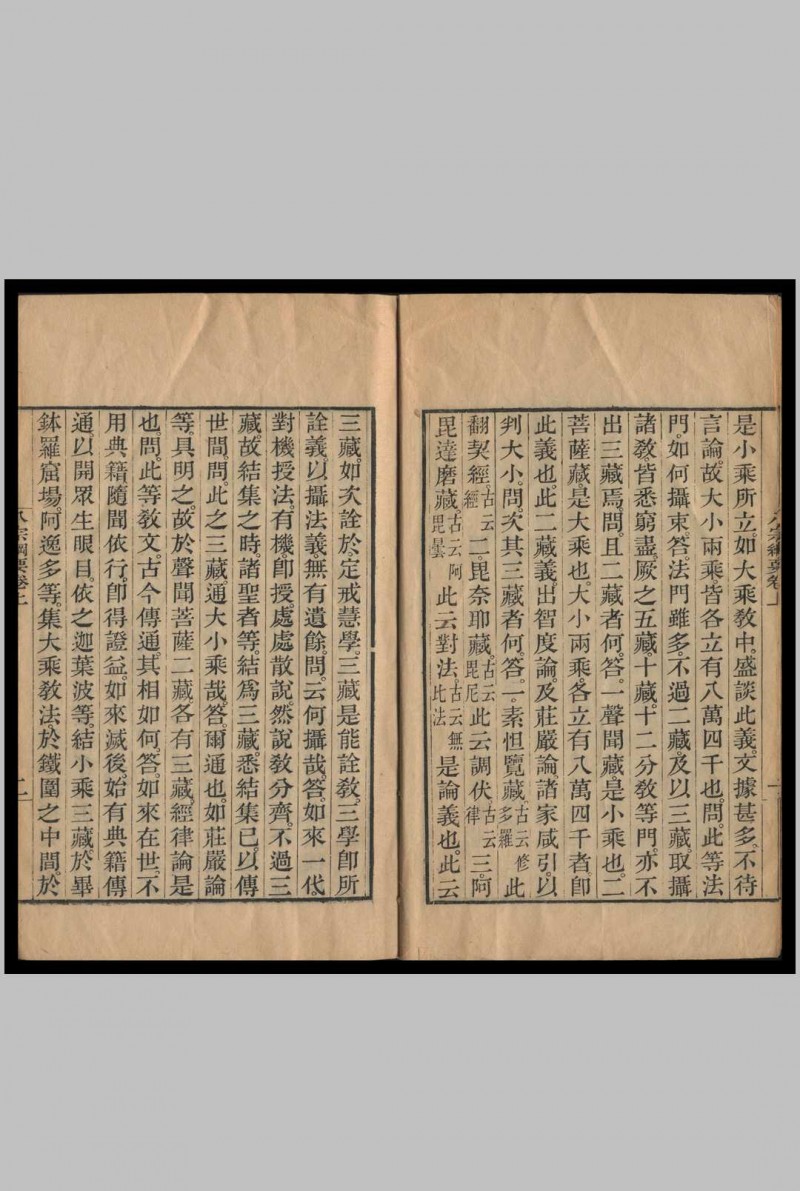 是小乘所立。如大乘敎中。盛談此義。文據甚多。不待
言論。故大小兩乘皆各立有八萬四千也。問。此等法
門。如何攝束。答。法門雖多。不過二藏。及以三藏。取攝
諸敎。皆悉窮盡。厥之五藏。十藏。十二分敎等門。亦不
出三藏焉。問。且二藏者何。答。一聲聞藏。是小乘也。二
菩薩藏。是大乘也。大小兩乘。各立有八萬四千者。卽
此義也。此二藏義。出智度論。及莊嚴論。諸家咸引。以
判大小。問。次其三藏者何。答。一。素怛覽藏古云修多羅此
翻契經古云經二。毘奈耶藏古云毘尼此云調伏古云律三。阿
毘達磨藏古云阿毘曇此云對法古云無比法是論義也。此云
三藏。如次詮於。定戒慧學。三藏是能詮敎。三學卽所
詮義。以攝法義。無有遺餘。問。云何攝哉。答。如來一代。
對機授法。有機卽授。處處散說。然說敎分齊。不過三
藏。故結集之時。諸聖者等。結爲三藏。悉結集已。以傳
世間。問。此之三藏。通大小乘哉。答。爾通也。如莊嚴論
等。具明之。故於聲聞菩薩二藏。各有三藏。經律論是
也。問。此等敎文。古今傳通。其相如何。答。如來在世。不
用典籍。隨聞依行。卽得證益。如來滅後。始有典籍。傳
通。以開眾生眼目。依之迦葉波等。結小乘三藏。於畢
鉢羅窟場。阿逸多等。集大乘敎法。於鐵圍之中間。於
八宗綱要卷上
二